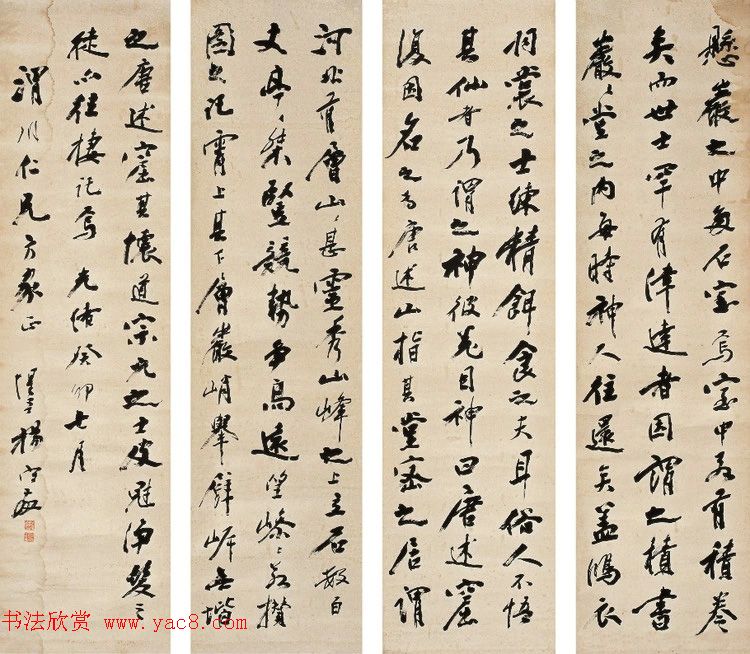 懸巖之中多石室焉室中若有積卷
矣而世士罕有津達者因謂之積書
巖〻堂之內每時神人往還矣蓋鴻衣
羽裳之士練精餌食之夫耳俗人不悟
其仙者乃謂之神彼羌目神曰唐述窟
復因名之為唐述山指其堂密之居謂
河北有層山〻甚靈秀山峰之上立石數百
丈亭〻桀豎競勢爭高遠望嵾〻若攢
圖之託霄上其下層巖峭舉壁岸無階
之唐述窟其懷道宗玄之士皮冠淨髮之
徒亦往棲託焉 光緒癸卯七月
渭川仁兄方家正 惺吾楊守敬
书法欣赏 www.yac8.com